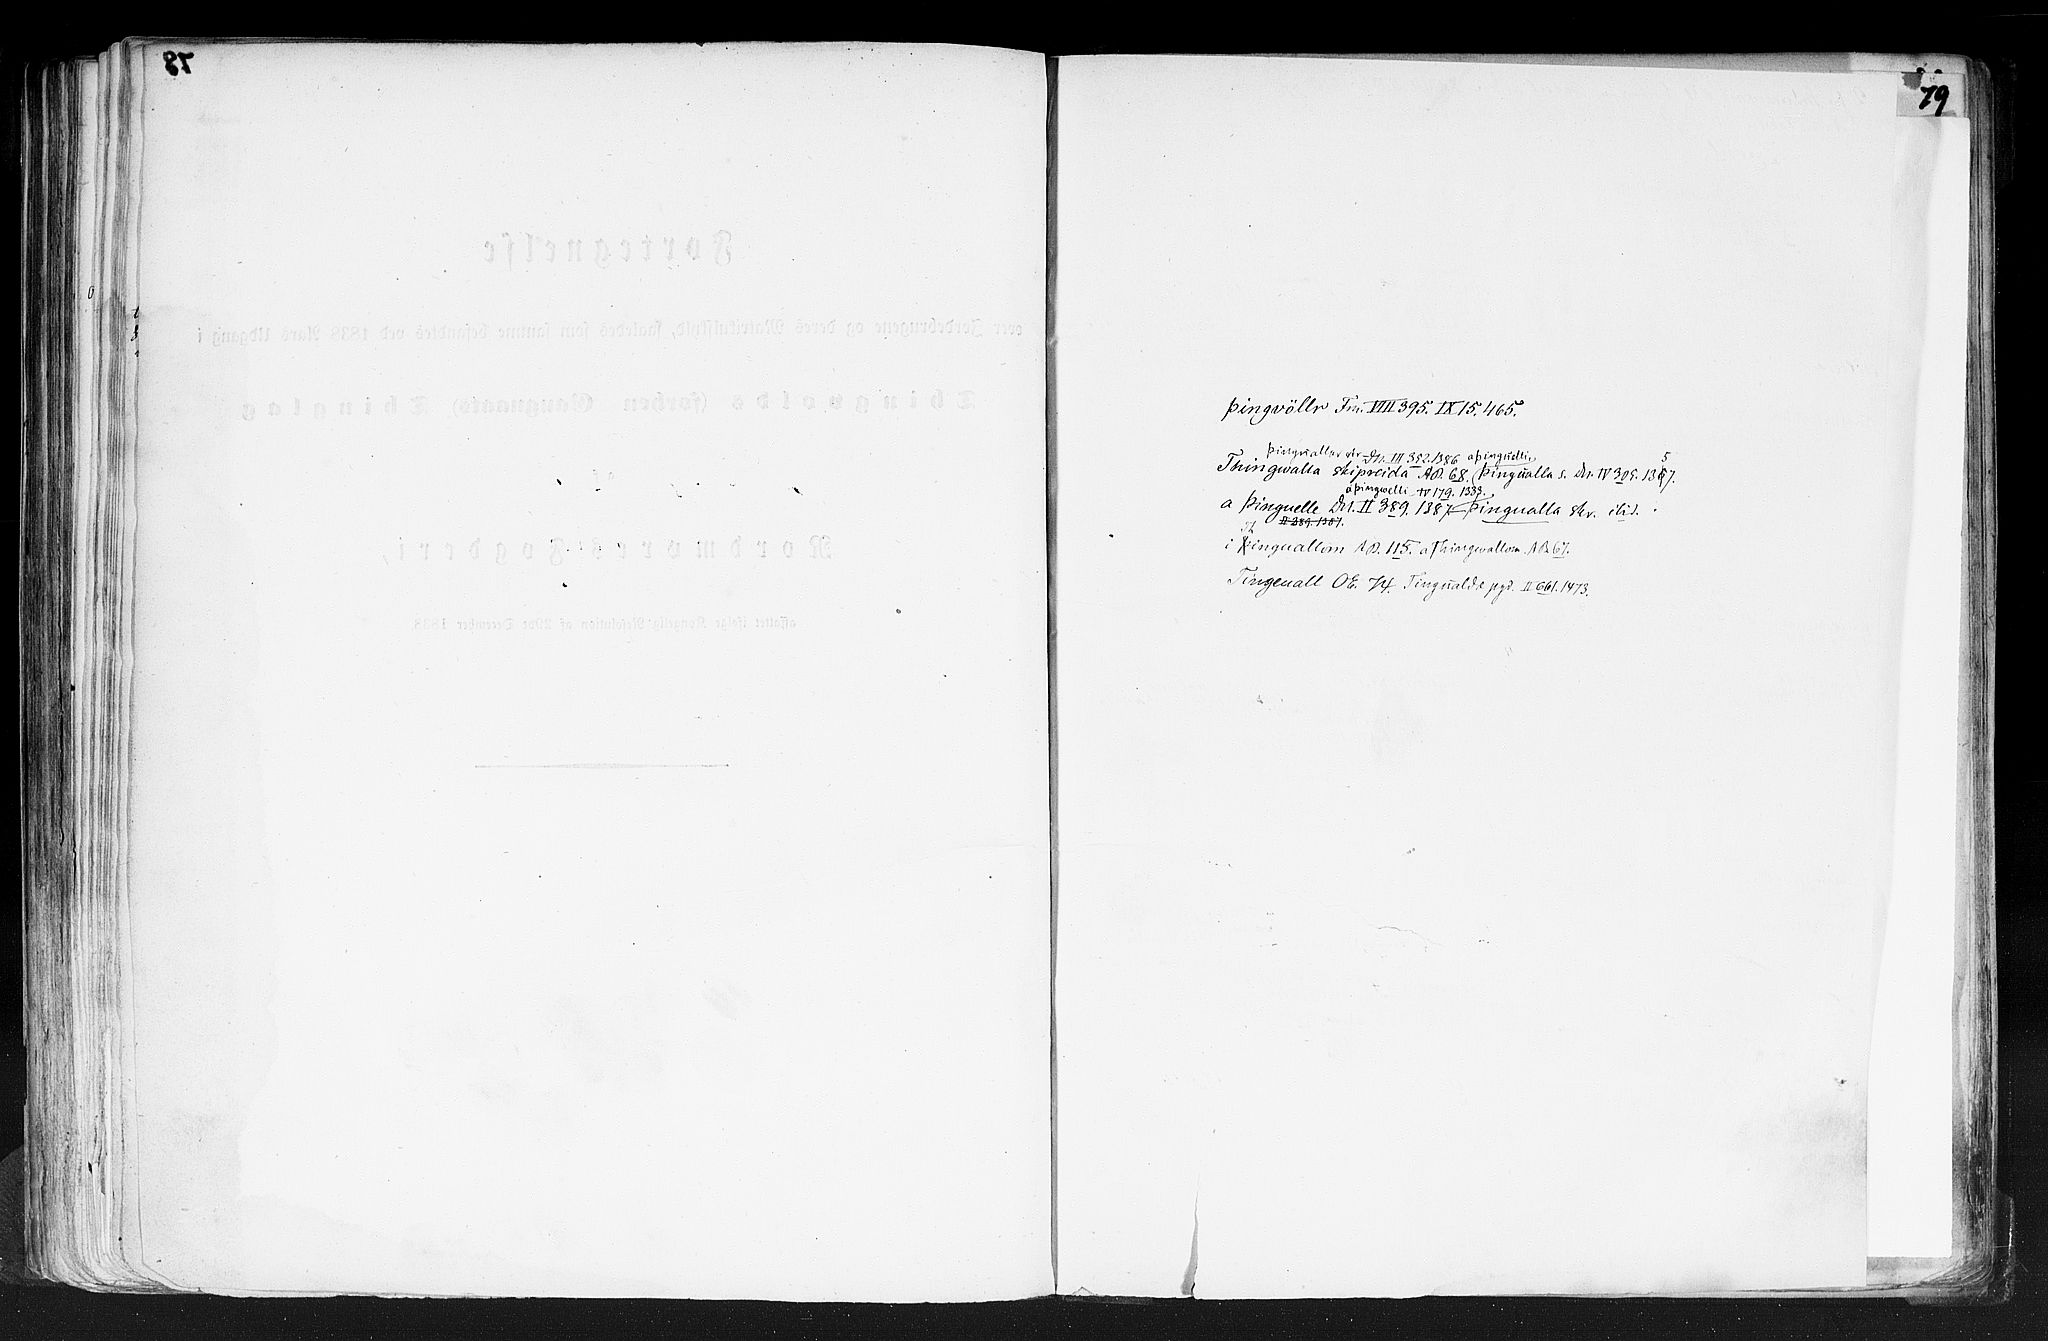 78
Fortegnelse
over Jordebrugene og deres Matrikulskyld, saaledes som samme befandtes ved 1838 Aars Udgang i
Thingvolds (forhen Sangnæs) Thinglag
Nordmøres Fogderi,
affattet ifølge Kongelig Resolution af 29de December 1838.
79
Þingvöllr Fm. VIII 395. IX 15. 465.
Þingvallar Dn. III 352. 1386 a Þinguelli
Thingwalla skipreida AB. 68. (Þingualla s. Dn. IV 305. 1367. 5
a Þingwelli IV 179. 1333.
a Þinguelle Dn. II 389. 1387. Þingualla skr. ibid.
II 289. 1387.
Th
i Þinguallom AB. 115. a Thingwallom AB. 67.
Tingeuall OE. 74. Tingualde pgd. II 661. 1473.